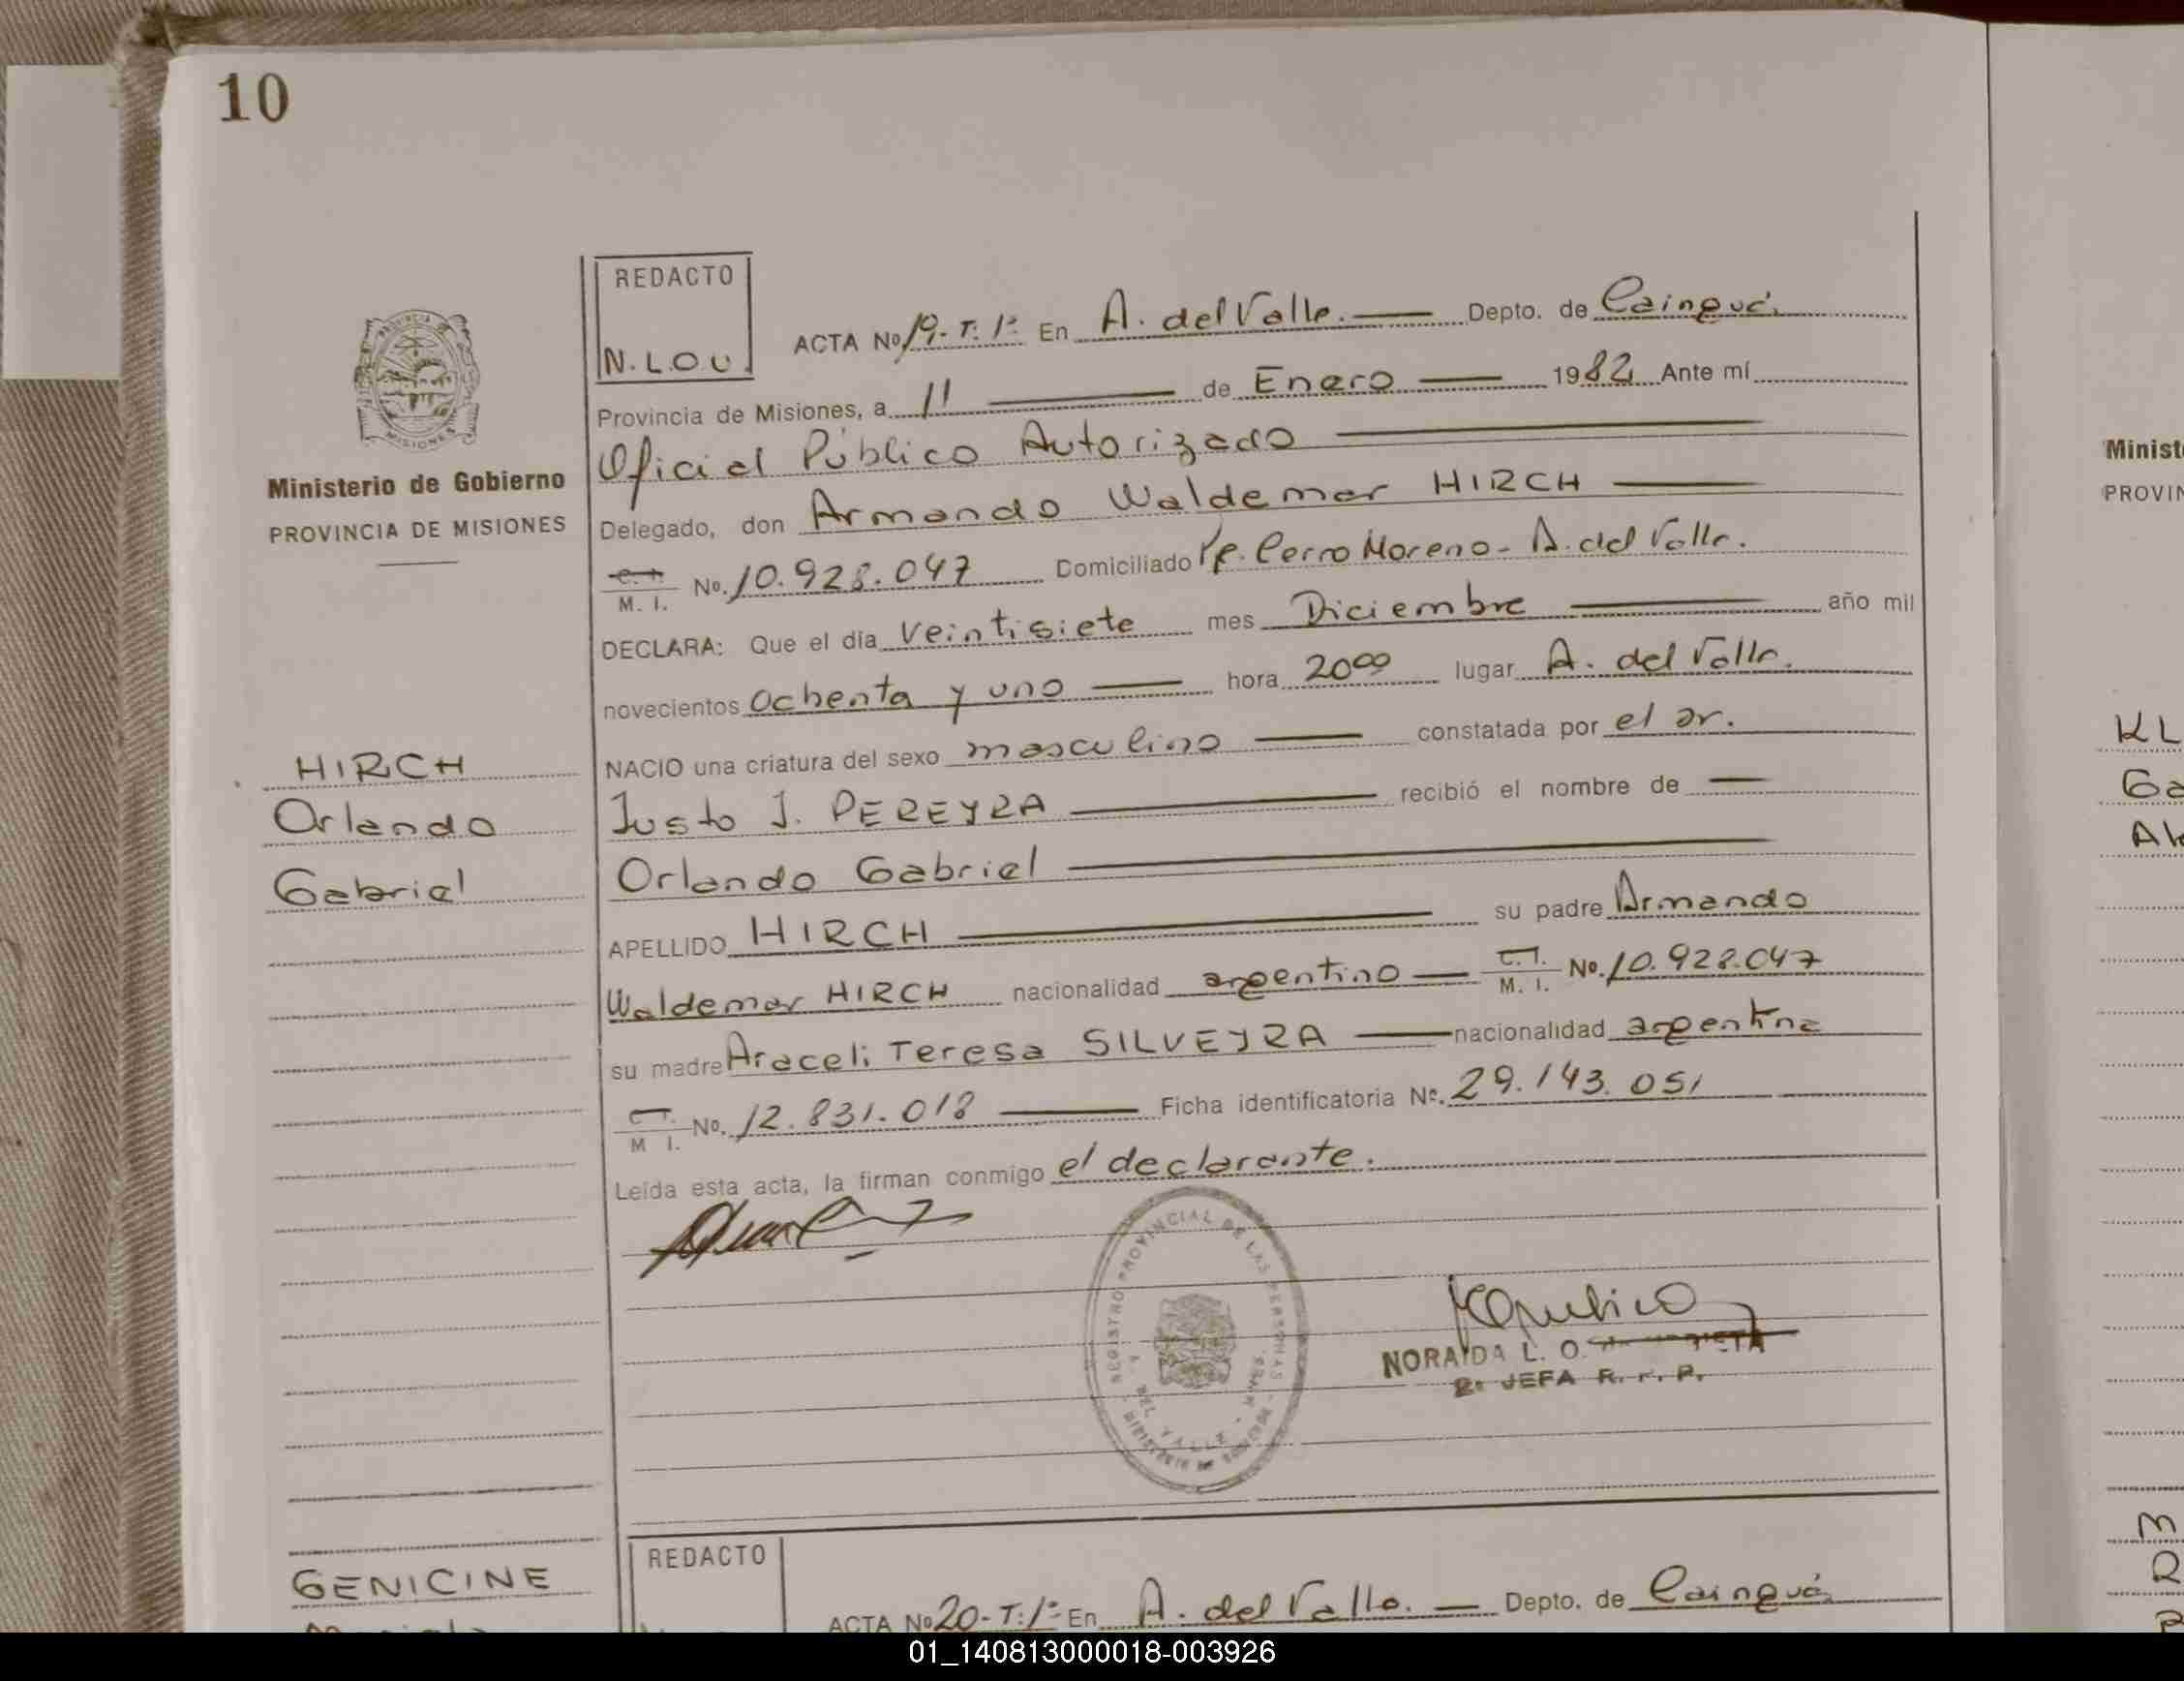 10
REDACTO
N.L.O.U.
ACTA No 19-T: 1º En A. del Valle. Depto. de Cainguá.
Provincia de Misiones, a 11 de Enero 1982 Ante mí
Oficial Público Autorizado
Delegado, don Armando Waldemar HIRCH
M. I. No. 10.928.047 Domiciliado Pje. Cerro Moreno - A. del Valle.
DECLARA: Que el día Veintisiete mes Diciembre año mil
novecientos Ochenta y uno hora 20⁰⁰ lugar A. del Valle.
NACIO una criatura del sexo masculino constatada por el Dr.
Justo J. PEREYRA recibió el nombre de
Orlando Gabriel
APELLIDO HIRCH su padre Armando
Waldemar HIRCH nacionalidad argentino C.I. M. I. No. 10.928.047
su madre Araceli Teresa SILVEYRA nacionalidad argentina
C I. M I. No. 12.831.018 Ficha identificatoria Nº. 29.143.051
Leída esta acta, la firman conmigo el declarante.
REGISTRO PROVINCIAL DE LAS PERSONAS
DEL VALLE
NORAIDA L. O.
2º JEFA R. P. P.
MISIONES
Ministerio de Gobierno
PROVINCIA DE MISIONES
HIRCH
Orlando
Gabriel
GENICINE
REDACTO
ACTA No 20-T: 1º En A. del Valle. Depto. de Cainguá.
Minist
PROVIN
KL
Ga
01_140813000018-003926